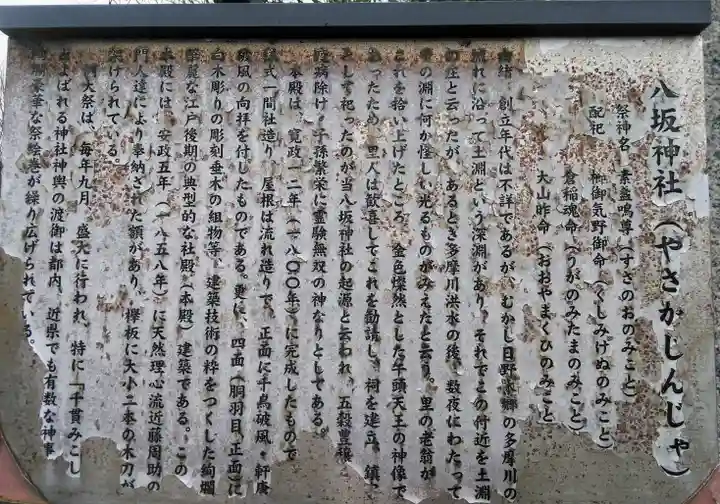 八坂神社（やさかじんじゃ）
祭神名　素盞嗚尊（すさのおのみこと）
配祀　櫛御気野御命（くしみけぬのみこと）
倉稲魂命（うがのみたまのみこと）
大山昨命（おおやまくひのみこと）
由緒、創立年代は不詳であるが、むかし日野本郷の多摩川の
流れに沿って土淵という深淵があり、それでこの付近を土淵
の庄と云ったが、あるとき多摩川洪水の後、数夜にわたって
その淵に何か怪しい光るものがみえたと云う。里の老翁が
これを拾い上げたところ、金色燦然とした牛頭天王の神像で
あったため、里人は歓喜してこれを勧請し、祠を建立、鎮守
として祀ったのが当八坂神社の起源と云われ、五穀豊穣
疫病除け、子孫繁栄に霊験無双の神なりとしてある。
本殿は、寛政一二年（一八〇〇年）に完成したもので
様式一間社造り、屋根は流れ造りで、正面に千鳥破風、軒唐
破風の向拝を付したものである。更に、四面（胴羽目、正面）に
白木彫りの彫刻垂木の組物等、建築技術の粋をつくした絢爛
華麗な江戸後期の典型的な社殿（本殿）建築である。この
本殿には、安政五年（一八五八年）に天然理心流近藤周助の
門人達により奉納された額があり、欅板に大小二本の木刀が
架けられている。
例大祭は、毎年九月、盛大に行われ、特に「千貫みこし
とよばれる神社神輿の渡御は都内、近県でも有数な神事
豪華な祭絵巻が繰り広げられている。